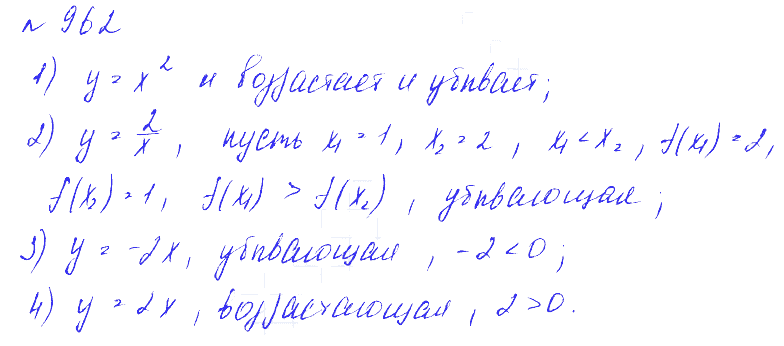 № 962
1) y = x² и возрастает и убывает;
2) y = 2/x, пусть x₁ = 1, x₂ = 2, x₁ < x₂, f(x₁) = 2,
f(x₂) = 1, f(x₁) > f(x₂), убывающая;
3) y = -2x, убывающая, -2 < 0;
4) y = 2x, возрастающая, 2 > 0.